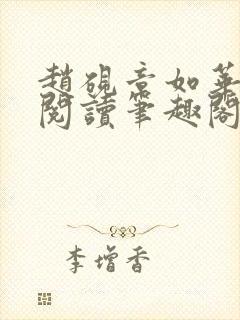 趙硯章如華
閱讀筆趣閣
李增香